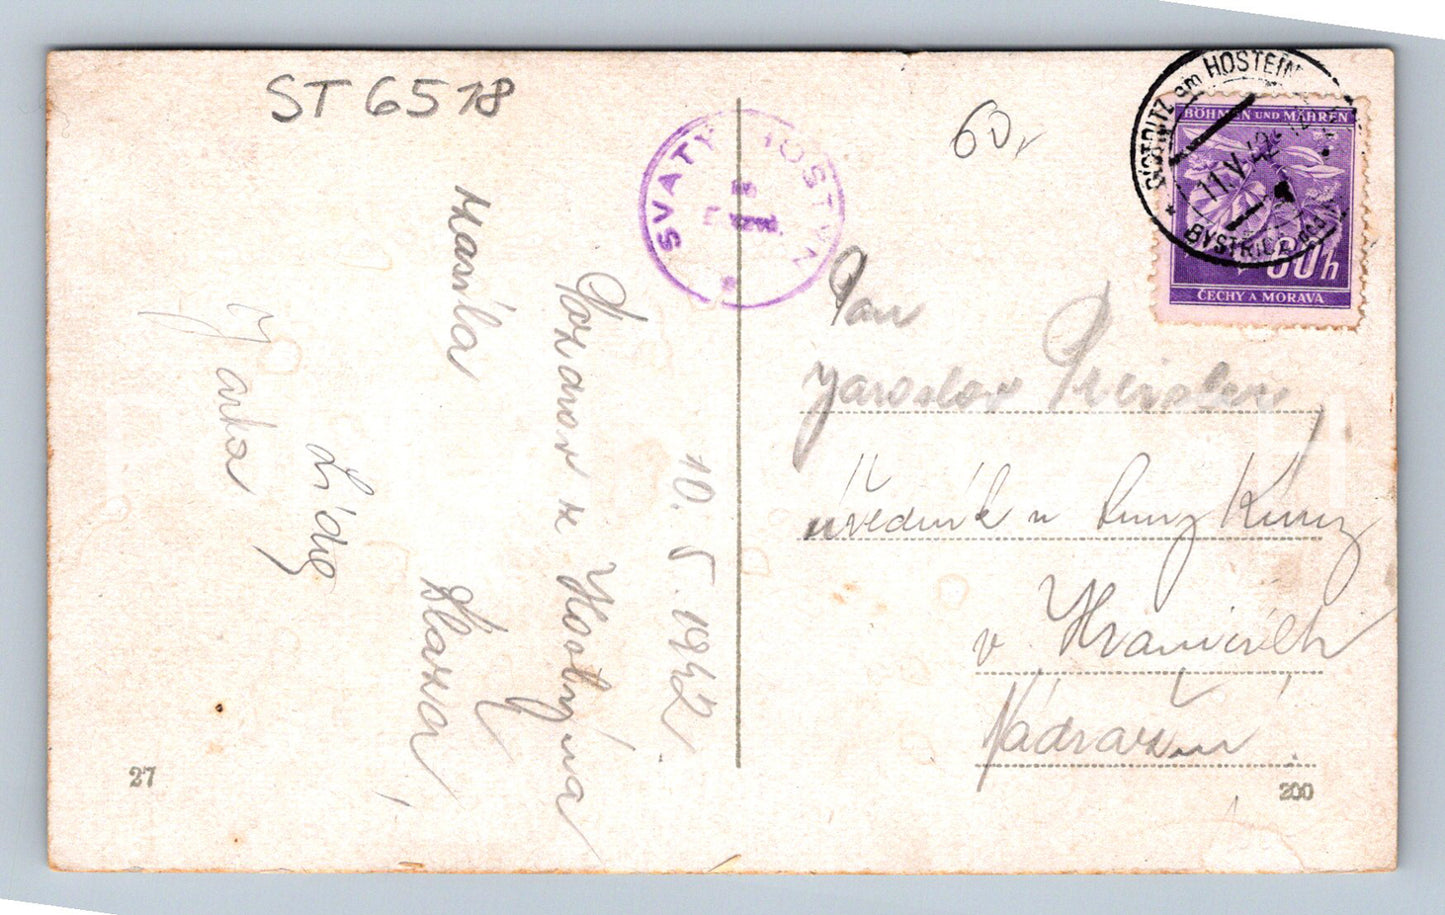 ST 6518
60,
SVATÝ HOSTÝN
BISTRITZ am HOSTEIN
11.V.42
BYSTŘICE
BÖHMEN UND MÄHREN
60h
ČECHY A MORAVA
10. 5. 1942
Pozdrav z Hostýna
Mařka
Jarka
Pan
Jaroslav
úředník u Kunz
v Hranicích
Nádražní.
27
200